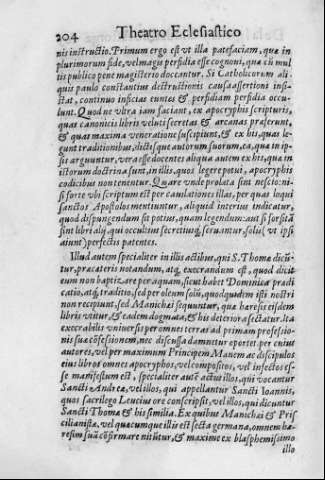 204 Theatro Eclesiastico
nis instructio. Primum ergo est vt illa patefaciam, quæ in
plurimorum fide, vel magis perfidia esse cognoui, quæ cũ mul
tis publico pene magisterio doceantur. Si Catholicorum ali
quis paulo constantius destructionis causa assertioni insi-
stat, continuo inficias euntes & perfidiam perfidia occu
lunt. Quod ne vltra iam faciant, ex apocryphis scripturis,
quas canonicis libris velut secretas & arcanas præferunt,
& quas maxima veneratione suscipiunt, & ex his, quas le-
gunt traditionibus, dictisque autorum suorum, ea, quæ in ip-
sis arguuntur, vera esse docentes aliqua autem ex his, quæ in
istorum doctrina sunt, in illis, quos legere potui, apocryphis
codicibus non tenentur. Quare vnde prolata sint nescio: ni-
si forte vbi scriptum est per caulationes illas, per quas loqui
sanctos Apostolos mentiuntur, aliquid interius indicatur,
quod dispungendum sit potius, quam legendum: aut si forsitã
sint libri alij, qui occultius secretiusq; seruantur, solis (vt ipsi
aiunt) perfectis patentes.
Illud autem specialiter in illis actibus, qui S. Thomæ dicũ-
tur, præ cæteris notandum, atq; execrandum est, quod dicit
eum non baptizare per aquam, sicut habet Dominica prædi
catio, atq; traditio, sed per oleum solũ, quod quidem isti nostri
non recipiunt, sed Manichæi sequuntur, quæ hæresis eisdem
libris vtitur, & eadem dogmata, & his deteriora sectatur. Ita
execrabilis vniuersis per omnes terras ad primam professio-
nis suæ cõfesionem, nec discussa damnetur oportet, per cuius
autores, vel per maximum Principem Manem ac discipulos
eius libros omnes apocryphos, vel compositos, vel infectos es-
se manifestum est, specialiter autẽ actus illos, qui vocantur
Sancti Andreæ, vel illos, qui appellantur Sancti Ioannis,
quos sacrilego Leucius ore conscripsit, vel illos, qui dicuntur
Sancti Thomæ & his similia. Ex quibus Manichæi & Pris
cilianistæ, vel quæcumque illis est secta germana, omnem hæ-
resim suã cõfirmare nitũtur, & maxime ex blasphemissimo
illo